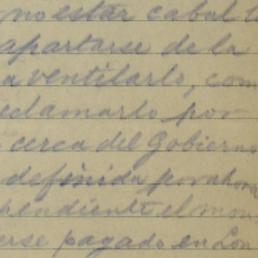 no estar cabal l
apartarse de la
a ventilarlo, com
eclamarlo por
cerca del Gobierno
definida por ahora
pendiente el mon
erse pagado en Lon